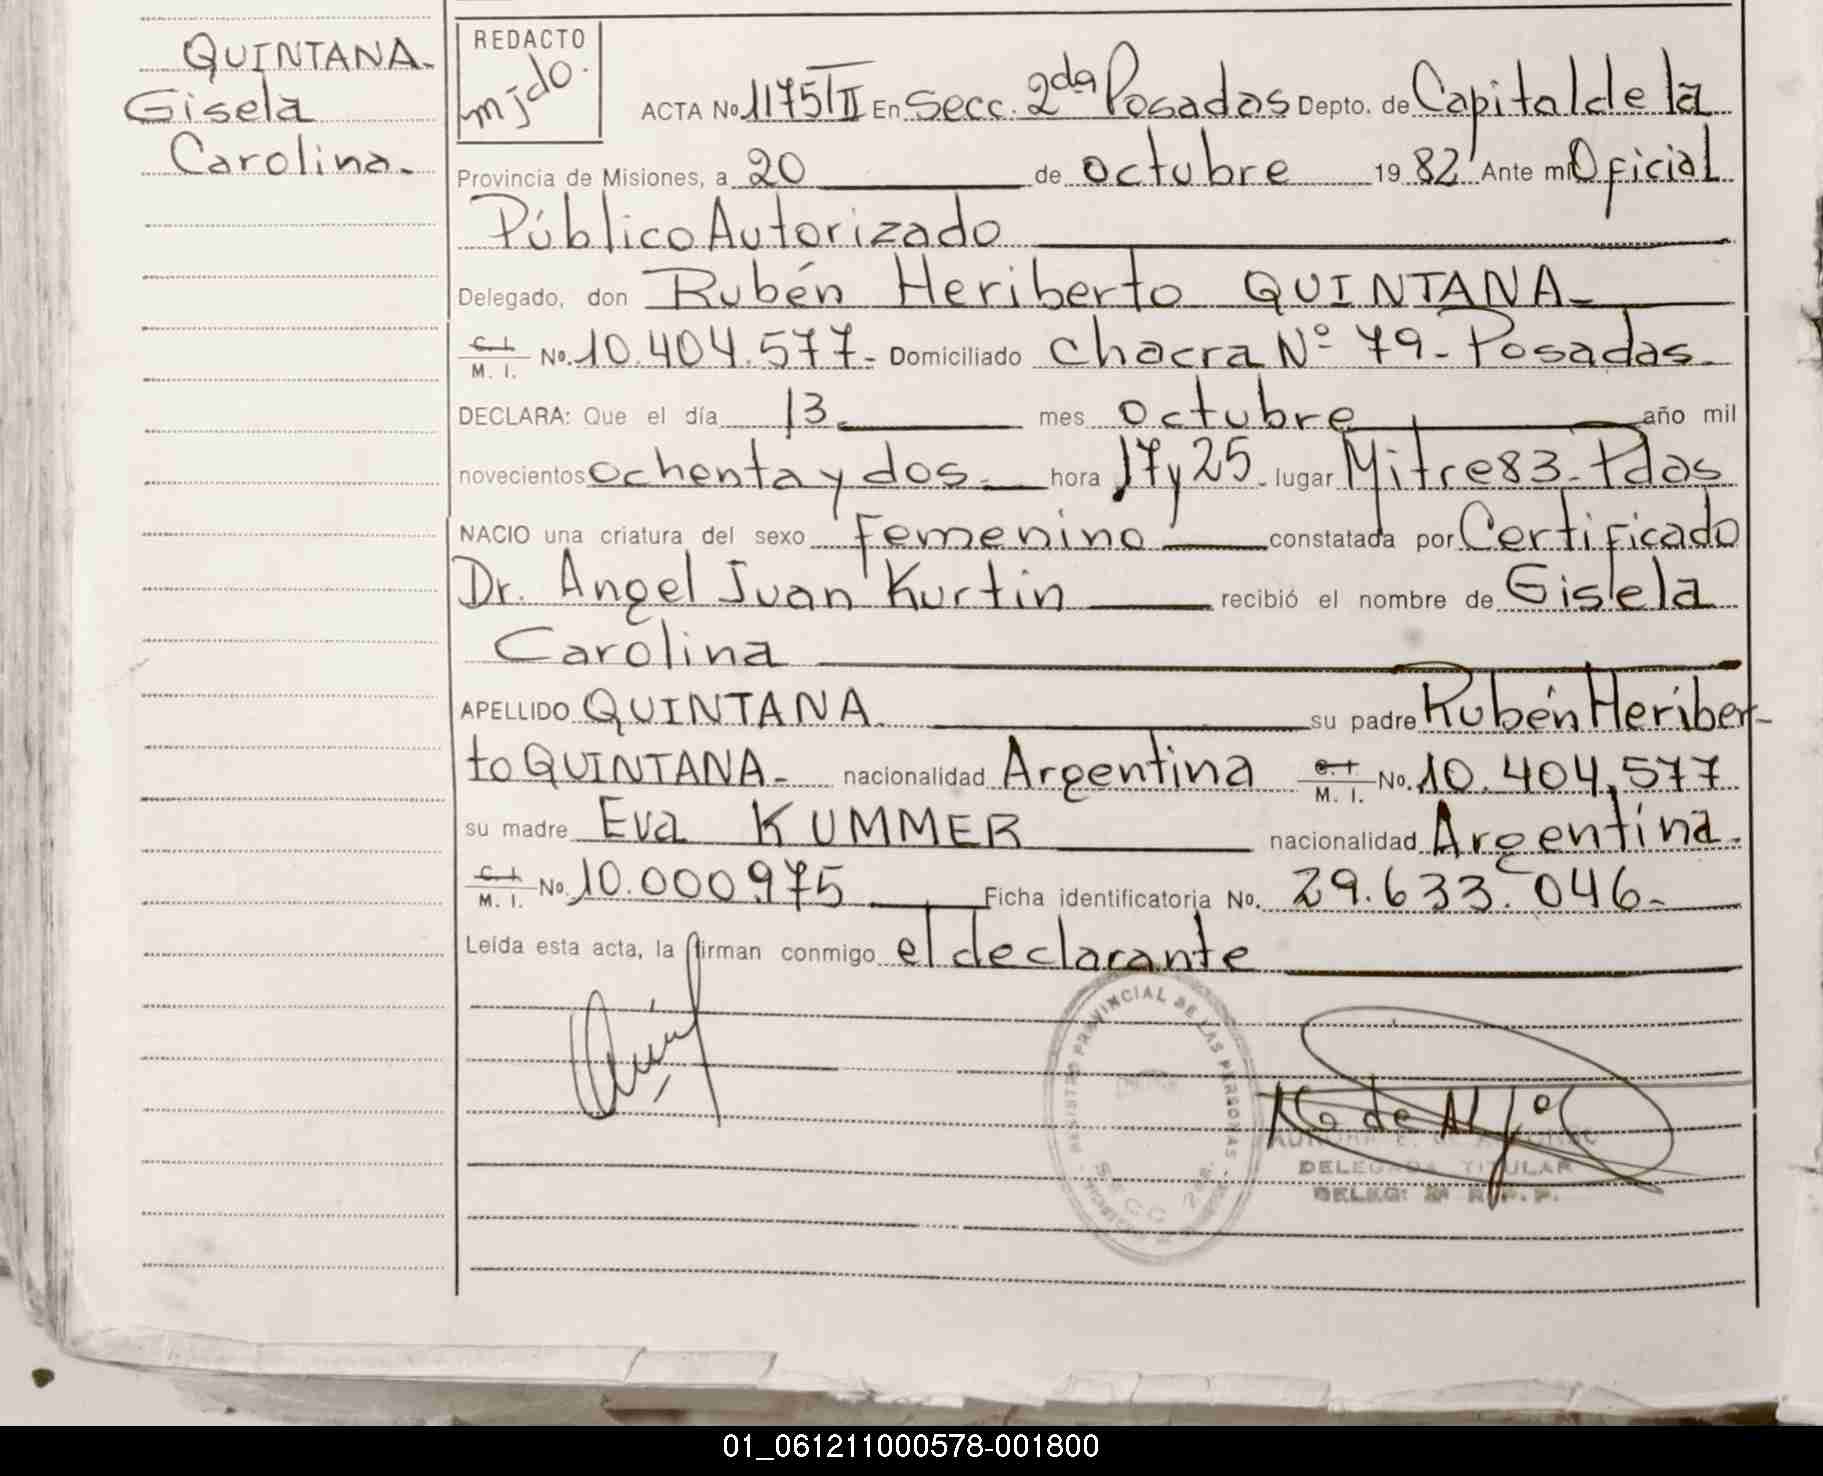 QUINTANA.
Gisela
Carolina.
REDACTO
mjdo.
ACTA No 1175/II En Secc. 2da Posadas Depto. de Capital de la
Provincia de Misiones, a 20 de octubre 1982 Ante mi Oficial
Público Autorizado
Delegado, don Rubén Heriberto QUINTANA
C. I.
M. I. No. 10.404.577- Domiciliado Chacra Nº 79- Posadas.
DECLARA: Que el día 13 mes octubre año mil
novecientos ochenta y dos. hora 17 y 25. lugar Mitre 83- Pdas
NACIO una criatura del sexo Femenino constatada por Certificado
Dr. Angel Juan Kurtin recibió el nombre de Gisela
Carolina
APELLIDO QUINTANA. su padre Rubén Heriber-
to QUINTANA- nacionalidad Argentina C. I.
M. I. No. 10.404.577
su madre Eva KUMMER nacionalidad Argentina.
C. I.
M. I. No. 10.000.975 Ficha identificatoria No. 29.633.046-
Leída esta acta, la firman conmigo el declarante
REGISTRO PROVINCIAL DE LAS PERSONAS
SECC. 2da.
DELEGADA TITULAR
DELEG: 2ª R.P.P.
01_061211000578-001800